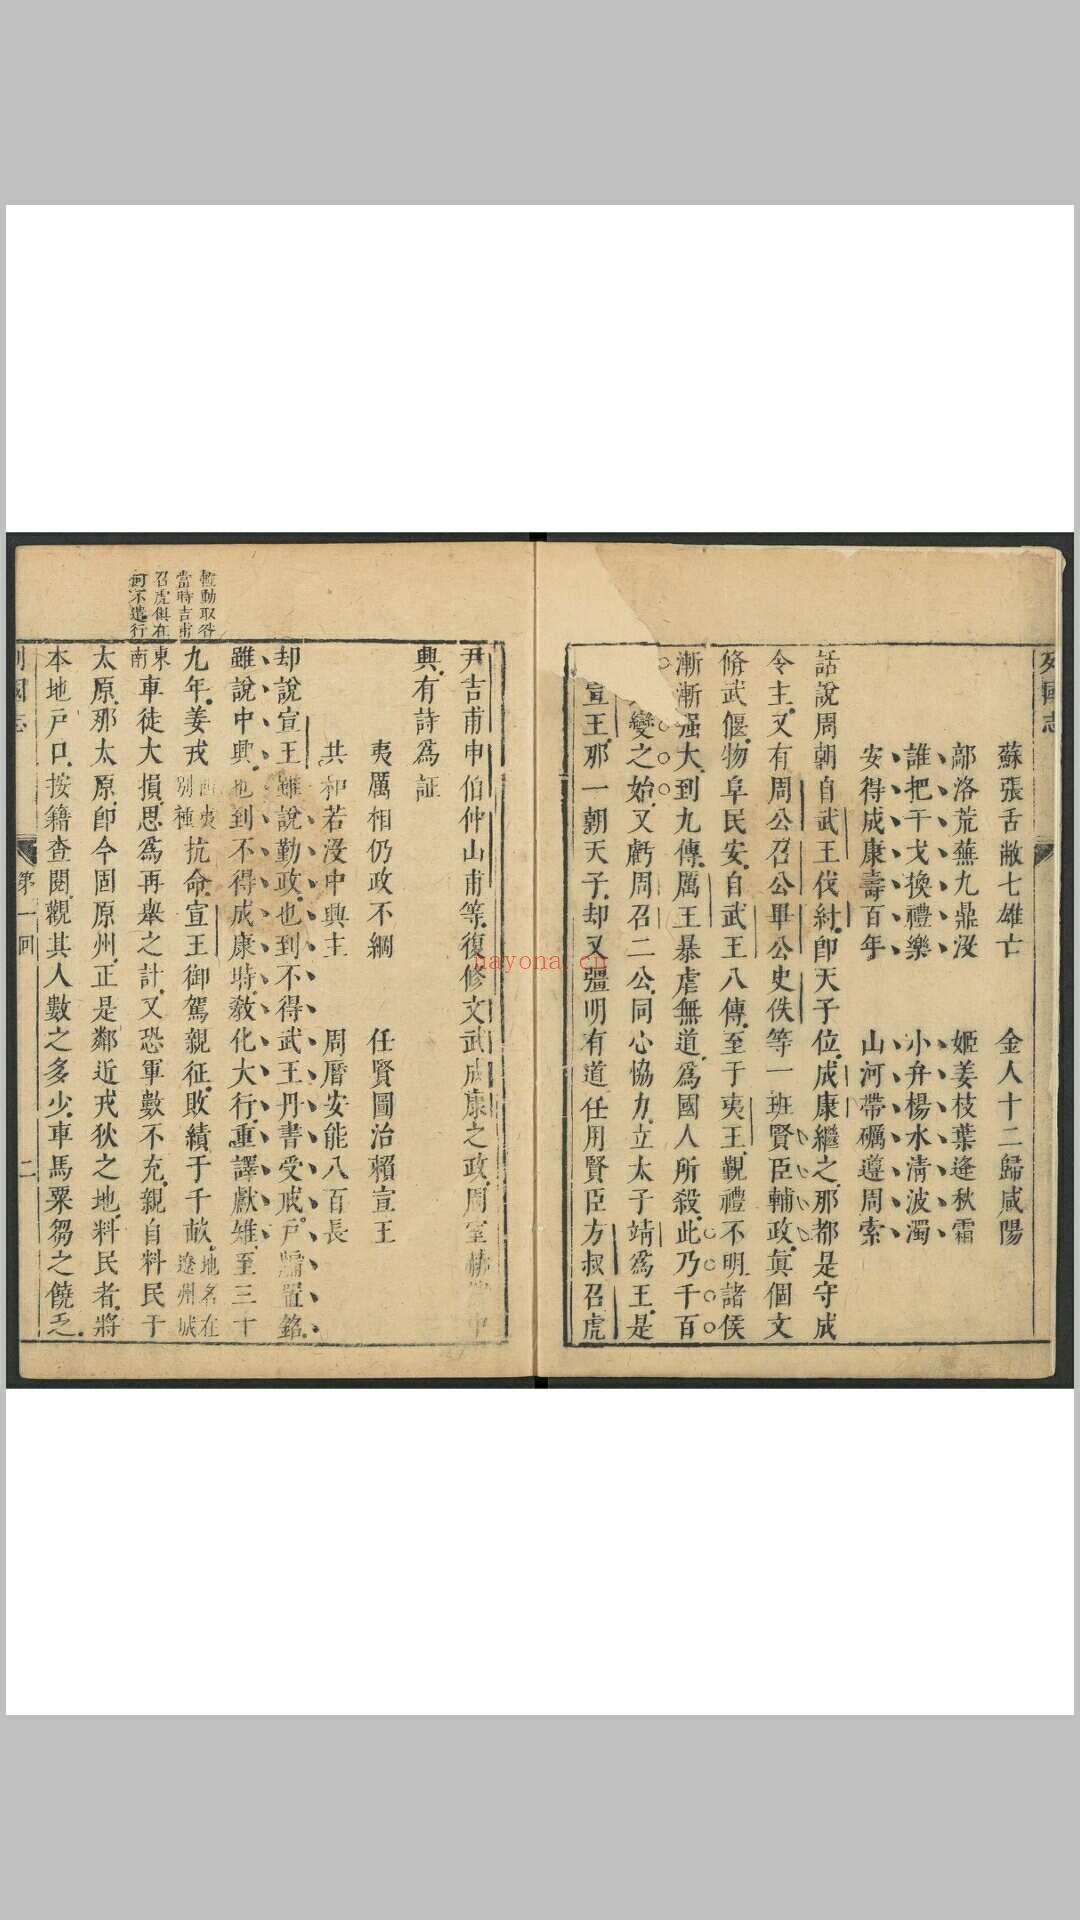 蘇張舌敝七雄亡　金人十二歸咸陽
鄗洛荒蕪九鼎沒　姬姜枝葉逢秋霜
誰把干戈換禮樂　小弁楊水清波濁
安得成康壽百年　山河帶礪遵周索
話說周朝自武王伐紂卽天子位成康繼之那都是守成
令主又有周公召公畢公史佚等一班賢臣輔政眞個文
脩武偃物阜民安自武王八傳至于夷王覲禮不明諸侯
漸漸强大到九傳厲王暴虐無道爲國人所殺此乃千百
變之始又虧周召二公同心協力立太子靖爲王是
宣王那一朝天子却又彊明有道任用賢臣方叔召虎
尹吉甫申伯仲山甫等復修文武成康之政周室赫然中
興有詩爲証
夷厲相仍政不綱　任賢圖治賴宣王
共和若沒中興主　周曆安能八百長
却說宣王雖說勤政也到不得武王丹書受戒戶牖置銘
雖說中興也到不得成康時教化大行重譯獻雉至三十
九年姜戎西夷別種抗命宣王御駕親征敗績于千畝地名在遼州城
東南車徒大損思爲再舉之計又恐軍數不充親自料民于
太原那太原卽今固原州正是鄰近戎狄之地料民者將
本地戶口按籍查閱觀其人數之多少車馬粟芻之饒乏
輕動取咎
當時吉甫
召虎俱在
何不遣行
列國志
第一回
二
nayona.cn